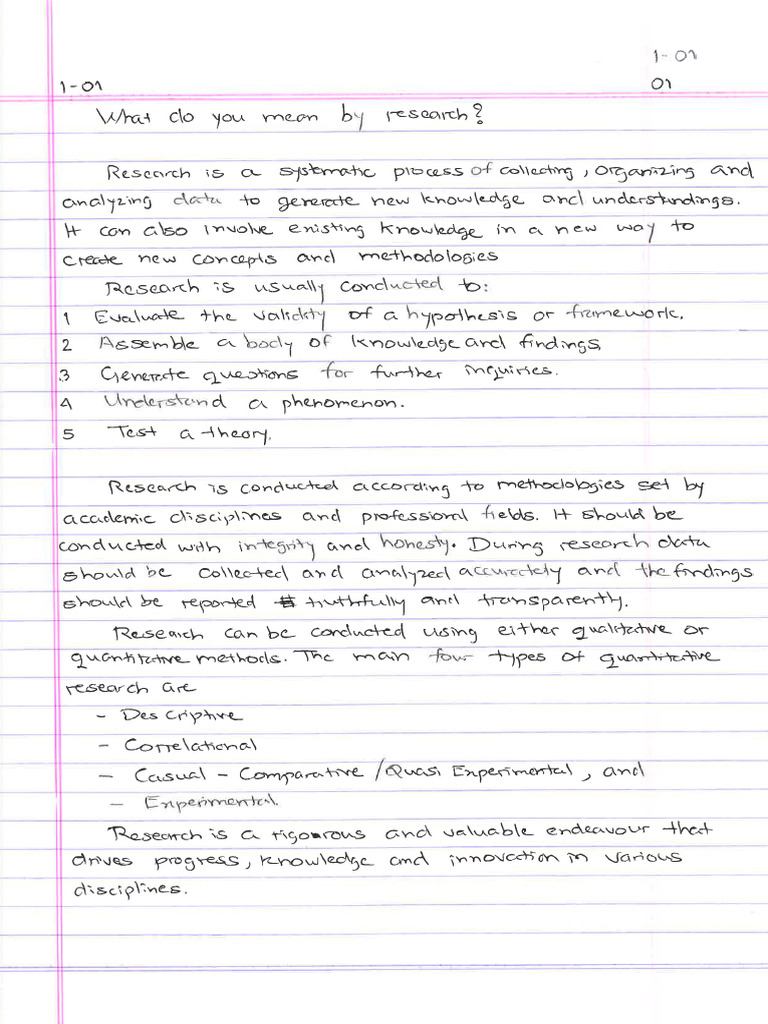 1-01
1-01
01
What do you mean by research?
Research is a systematic process of collecting, organizing and
analyzing data to generate new knowledge and understandings.
It can also involve existing knowledge in a new way to
create new concepts and methodologies
Research is usually conducted to:
1 Evaluate the validity of a hypothesis or framework.
2 Assemble a body of knowledge and findings
3 Generate questions for further inquiries.
4 Understand a phenomenon.
5 Test a theory.
Research is conducted according to methodologies set by
academic disciplines and professional fields. It should be
conducted with integrity and honesty. During research data
should be collected and analyzed accurately and the findings
should be reported truthfully and transparently.
Research can be conducted using either qualitative or
quantitative methods. The main four types of quantitative
research are
- Descriptive
- Correlational
- Casual - Comparative / Quasi Experimental, and
- Experimental.
Research is a rigourous and valuable endeavour that
drives progress, knowledge and innovation in various
disciplines.